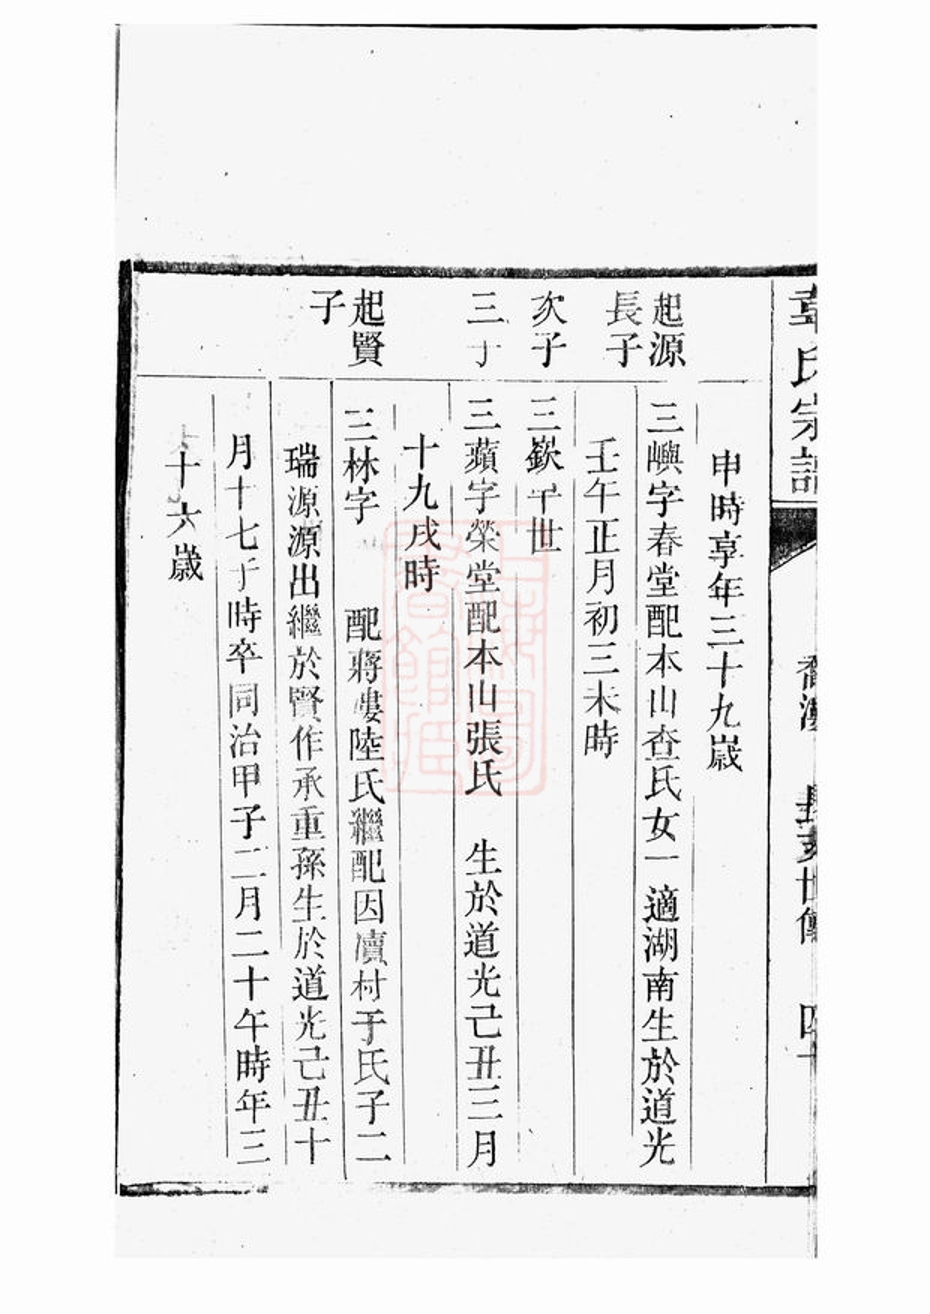 章氏宗譜
長亥世傳
申時享年三十九歲
起源長子
三嶼字春堂配本山查氏女一適湖南生於道光
壬午正月初三未時
次子
三嶔早世
三子
三蘋字榮堂配本山張氏 生於道光己丑三月
十九戌時
起賢子
三林字 配蔣 陸氏繼配因瀆村于氏子二
瑞源源出繼於賢作承重孫生於道光己丑十
月十七子時卒同治甲子二月二十午時年三
十六歲